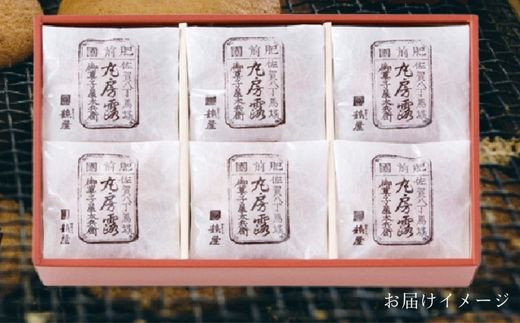 肥前國
佐賀八丁馬場
丸房露
御菓子屋太兵衛
鶴屋
肥前國
佐賀八丁馬場
丸房露
御菓子屋太兵衛
鶴屋
肥前國
佐賀八丁馬場
丸房露
御菓子屋太兵衛
鶴屋
肥前國
佐賀八丁馬場
丸房露
御菓子屋太兵衛
鶴屋
肥前國
佐賀八丁馬場
丸房露
御菓子屋太兵衛
鶴屋
肥前國
佐賀八丁馬場
丸房露
御菓子屋太兵衛
鶴屋
お届けイメージ